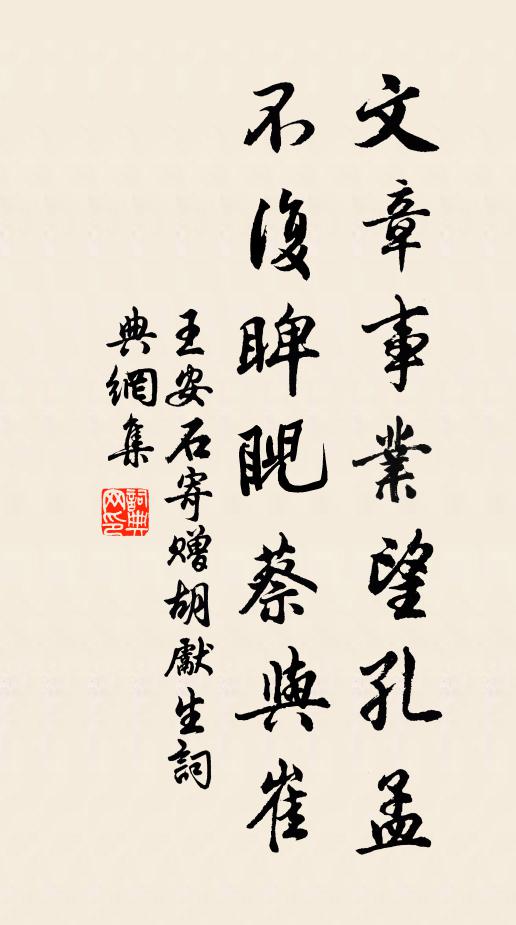 文章事業望孔孟
不復睥睨蔡與崔
王安石寄贈胡獻生詞
典網集
詞典网印